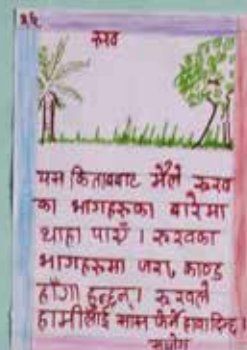 १६
रुख
यस किताबबाट मैले रुख
का भागहरुका बारेमा
थाहा पाएँ । रुखका
भागहरुमा जरा, काण्ड
हाँगा हुन्छन् । रुखले
हामीलाई सास फेर्ने हावा दिन्छ ।